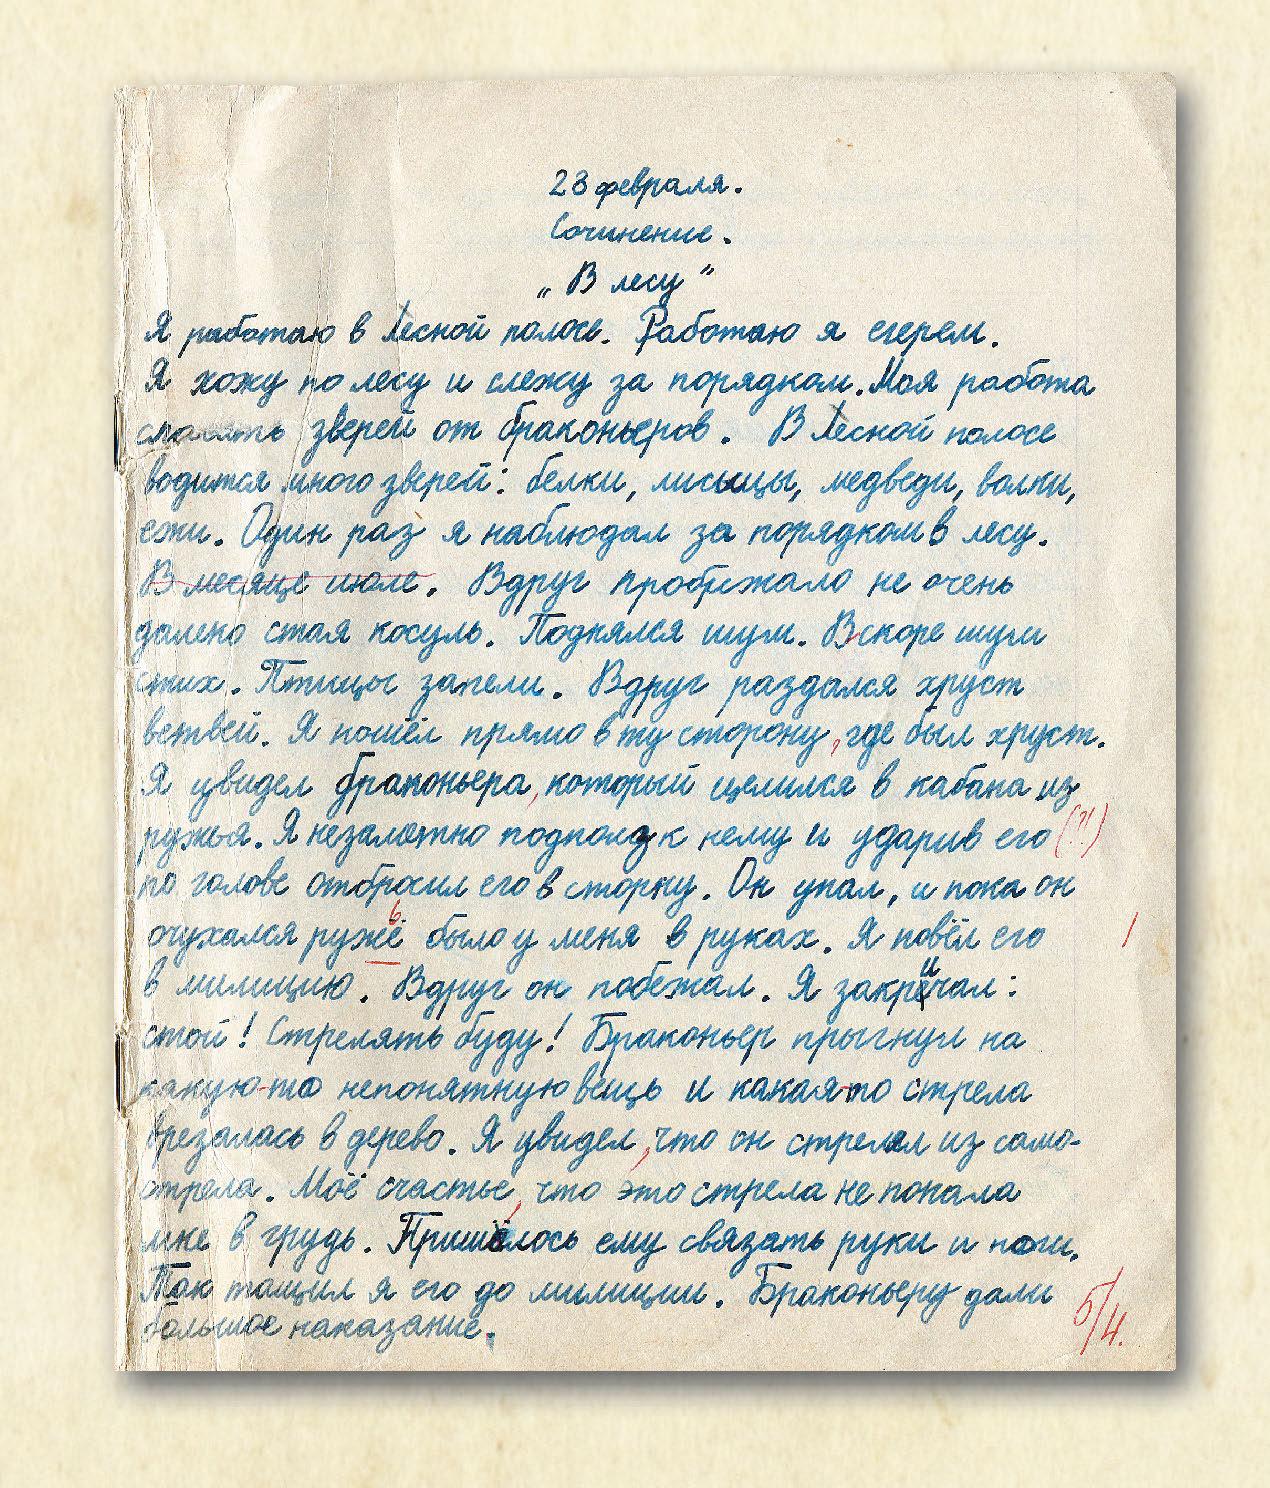 23 февраля.
Сочинение.
„В лесу"
Я работаю в Лесной полосе. Работаю я егерем.
Я хожу по лесу и слежу за порядком. Моя работа
спасать зверей от браконьеров. В Лесной полосе
водится много зверей: белки, лисицы, медведи, волки,
ежи. Один раз я наблюдал за порядком в лесу.
В месяце июле. Вдруг пробежало не очень
далеко стая косуль. Поднялся шум. Вскоре шум
стих. Птицы запели. Вдруг раздался хруст
ветвей. Я пошёл прямо в ту сторону, где был хруст.
Я увидел браконьера, который целился в кабана из
ружья. Я незаметно подполз к нему и ударив его (?!)
по голове отбросил его в сторну. Он упал, и пока он
очухался ружьё было у меня в руках. Я повёл его |
в милицию. Вдруг он побежал. Я закричал:
стой! Стрелять буду! Браконьер прыгнул на
какую-то непонятную вещь и какая-то стрела
врезалась в дерево. Я увидел, что он стрелял из само-
стрела. Моё счастье, что это стрела не попала
мне в грудь. Пришлось ему связать руки и ноги.
Так тащил я его до милиции. Браконьеру дали
большое наказание.
5/4.